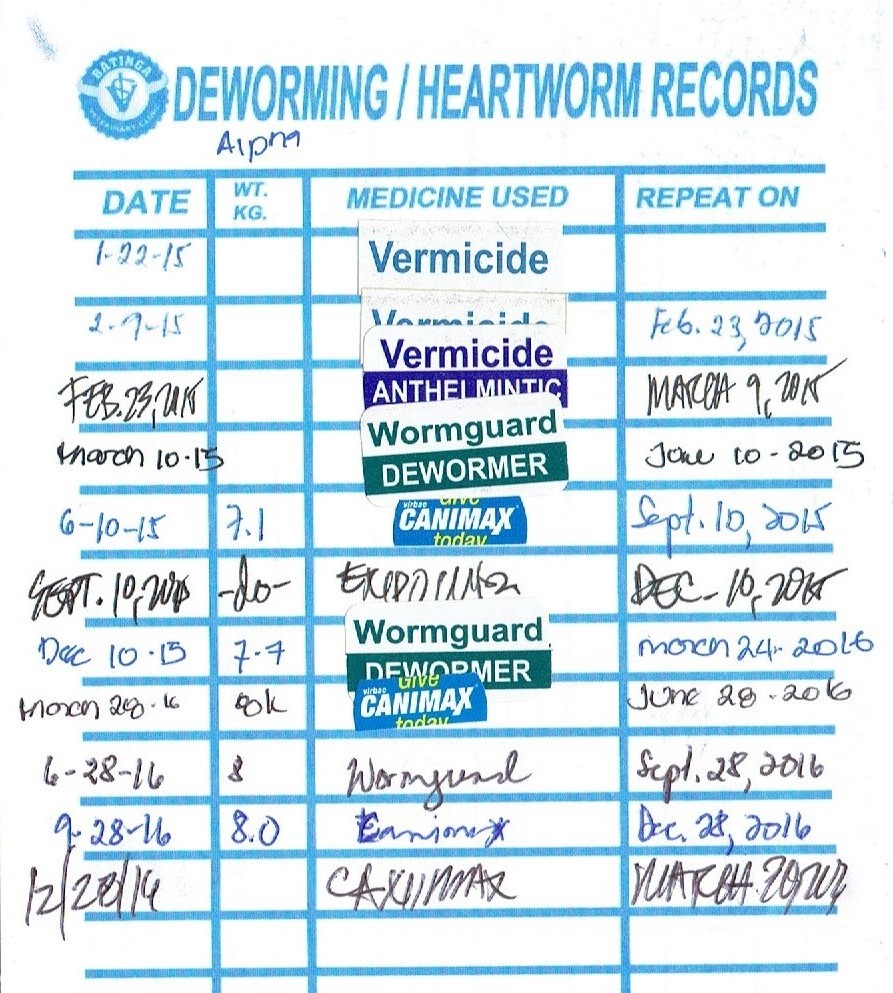 BATINGA VETERINARY CLINIC
DEWORMING / HEARTWORM RECORDS
Alpha
DATE WT. KG. MEDICINE USED REPEAT ON
1-22-15 Vermicide
2-9-15 Vermicide Feb. 23, 2015
FEB. 23, 2015 Vermicide ANTHELMINTIC MARCH 9, 2015
March 10-15 Wormguard DEWORMER June 10-2015
6-10-15 7.1 virbac Give CANIMAX today Sept. 10, 2015
SEPT. 10, 2015 -do- DEC- 10, 2015
Dec 10-15 7-7 Wormguard DEWORMER march 24-2016
March 28-16 8k virbac Give CANIMAX today JUNE 28-2016
6-28-16 8 Wormguard Sept. 28, 2016
9-28-16 8.0 Canimax Dec. 28, 2016
12/28/16 CANIMAX MARCH